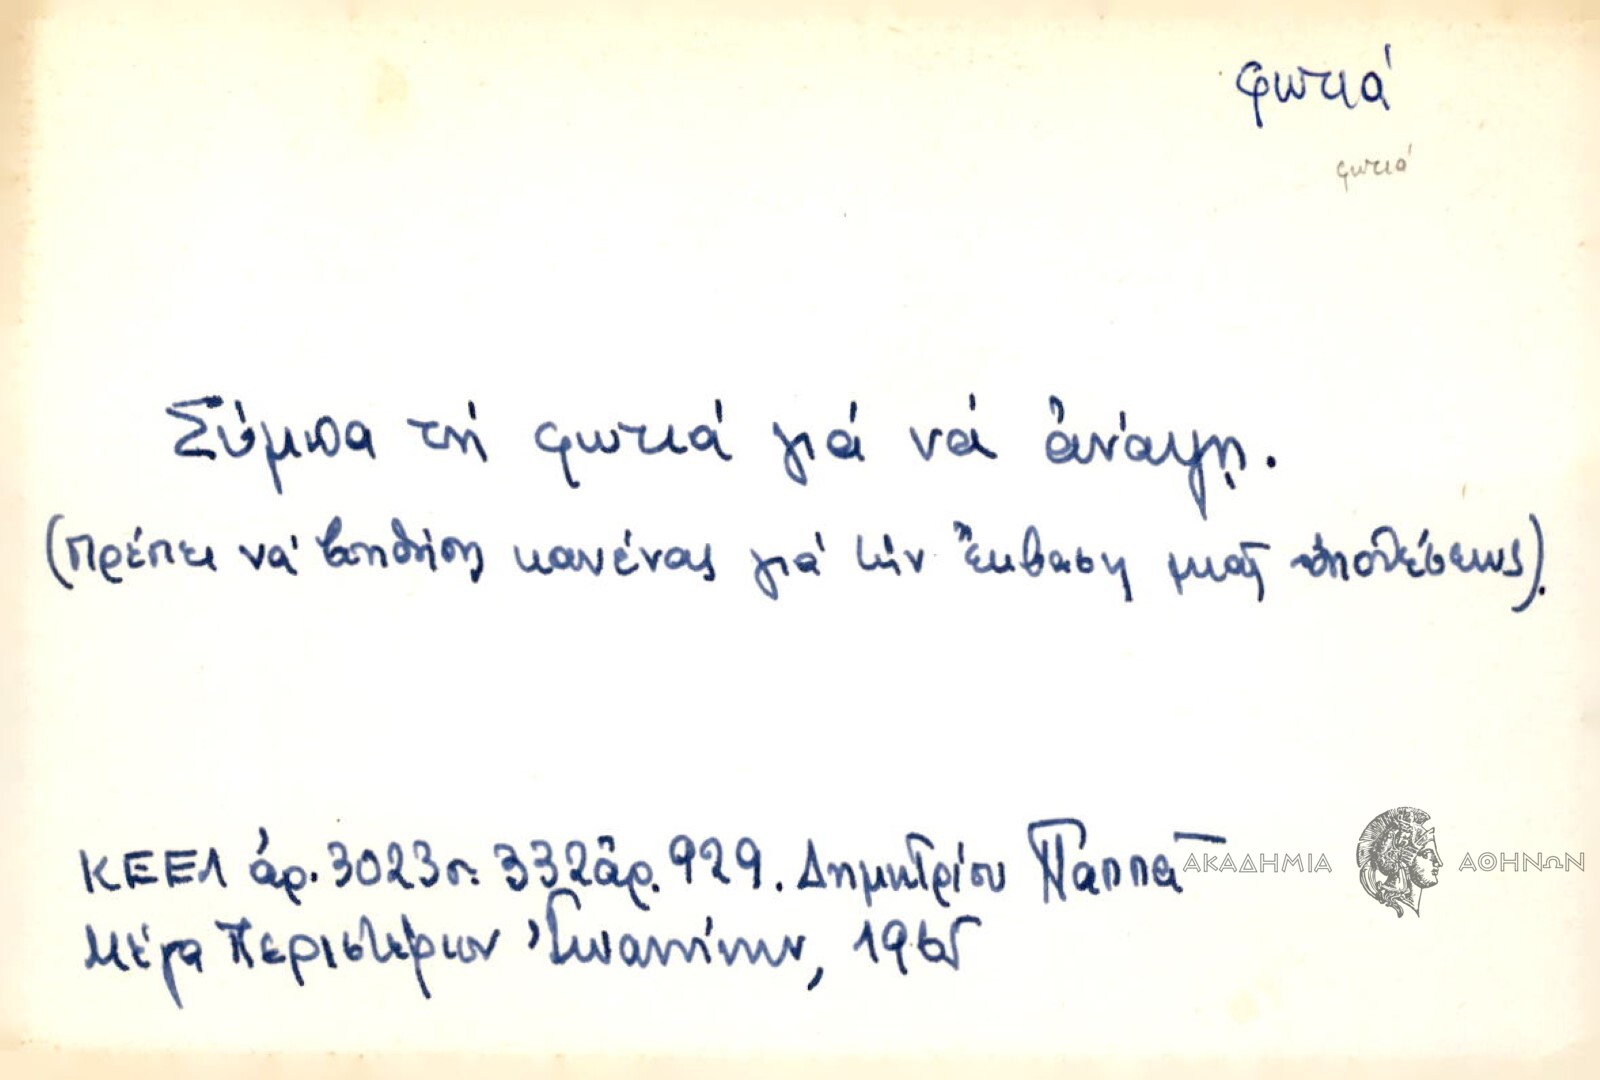 φωτιά
φωτιά
Σύμπα τή φωτιά γιά νά ἀνάψῃ.
(Πρέπει νά βοηθήσῃ κανένας γιά τήν ἔκβαση μιᾶς ὑποθέσεως).
ΚΕΕΛ ἀρ. 3023 σ. 332 ἀρ. 929. Δημητρίου Παππᾶ
ΑΚΑΔΗΜΙΑ ΑΘΗΝΩΝ
Μέγα Περιστέριον Ἰωαννίνων, 1965